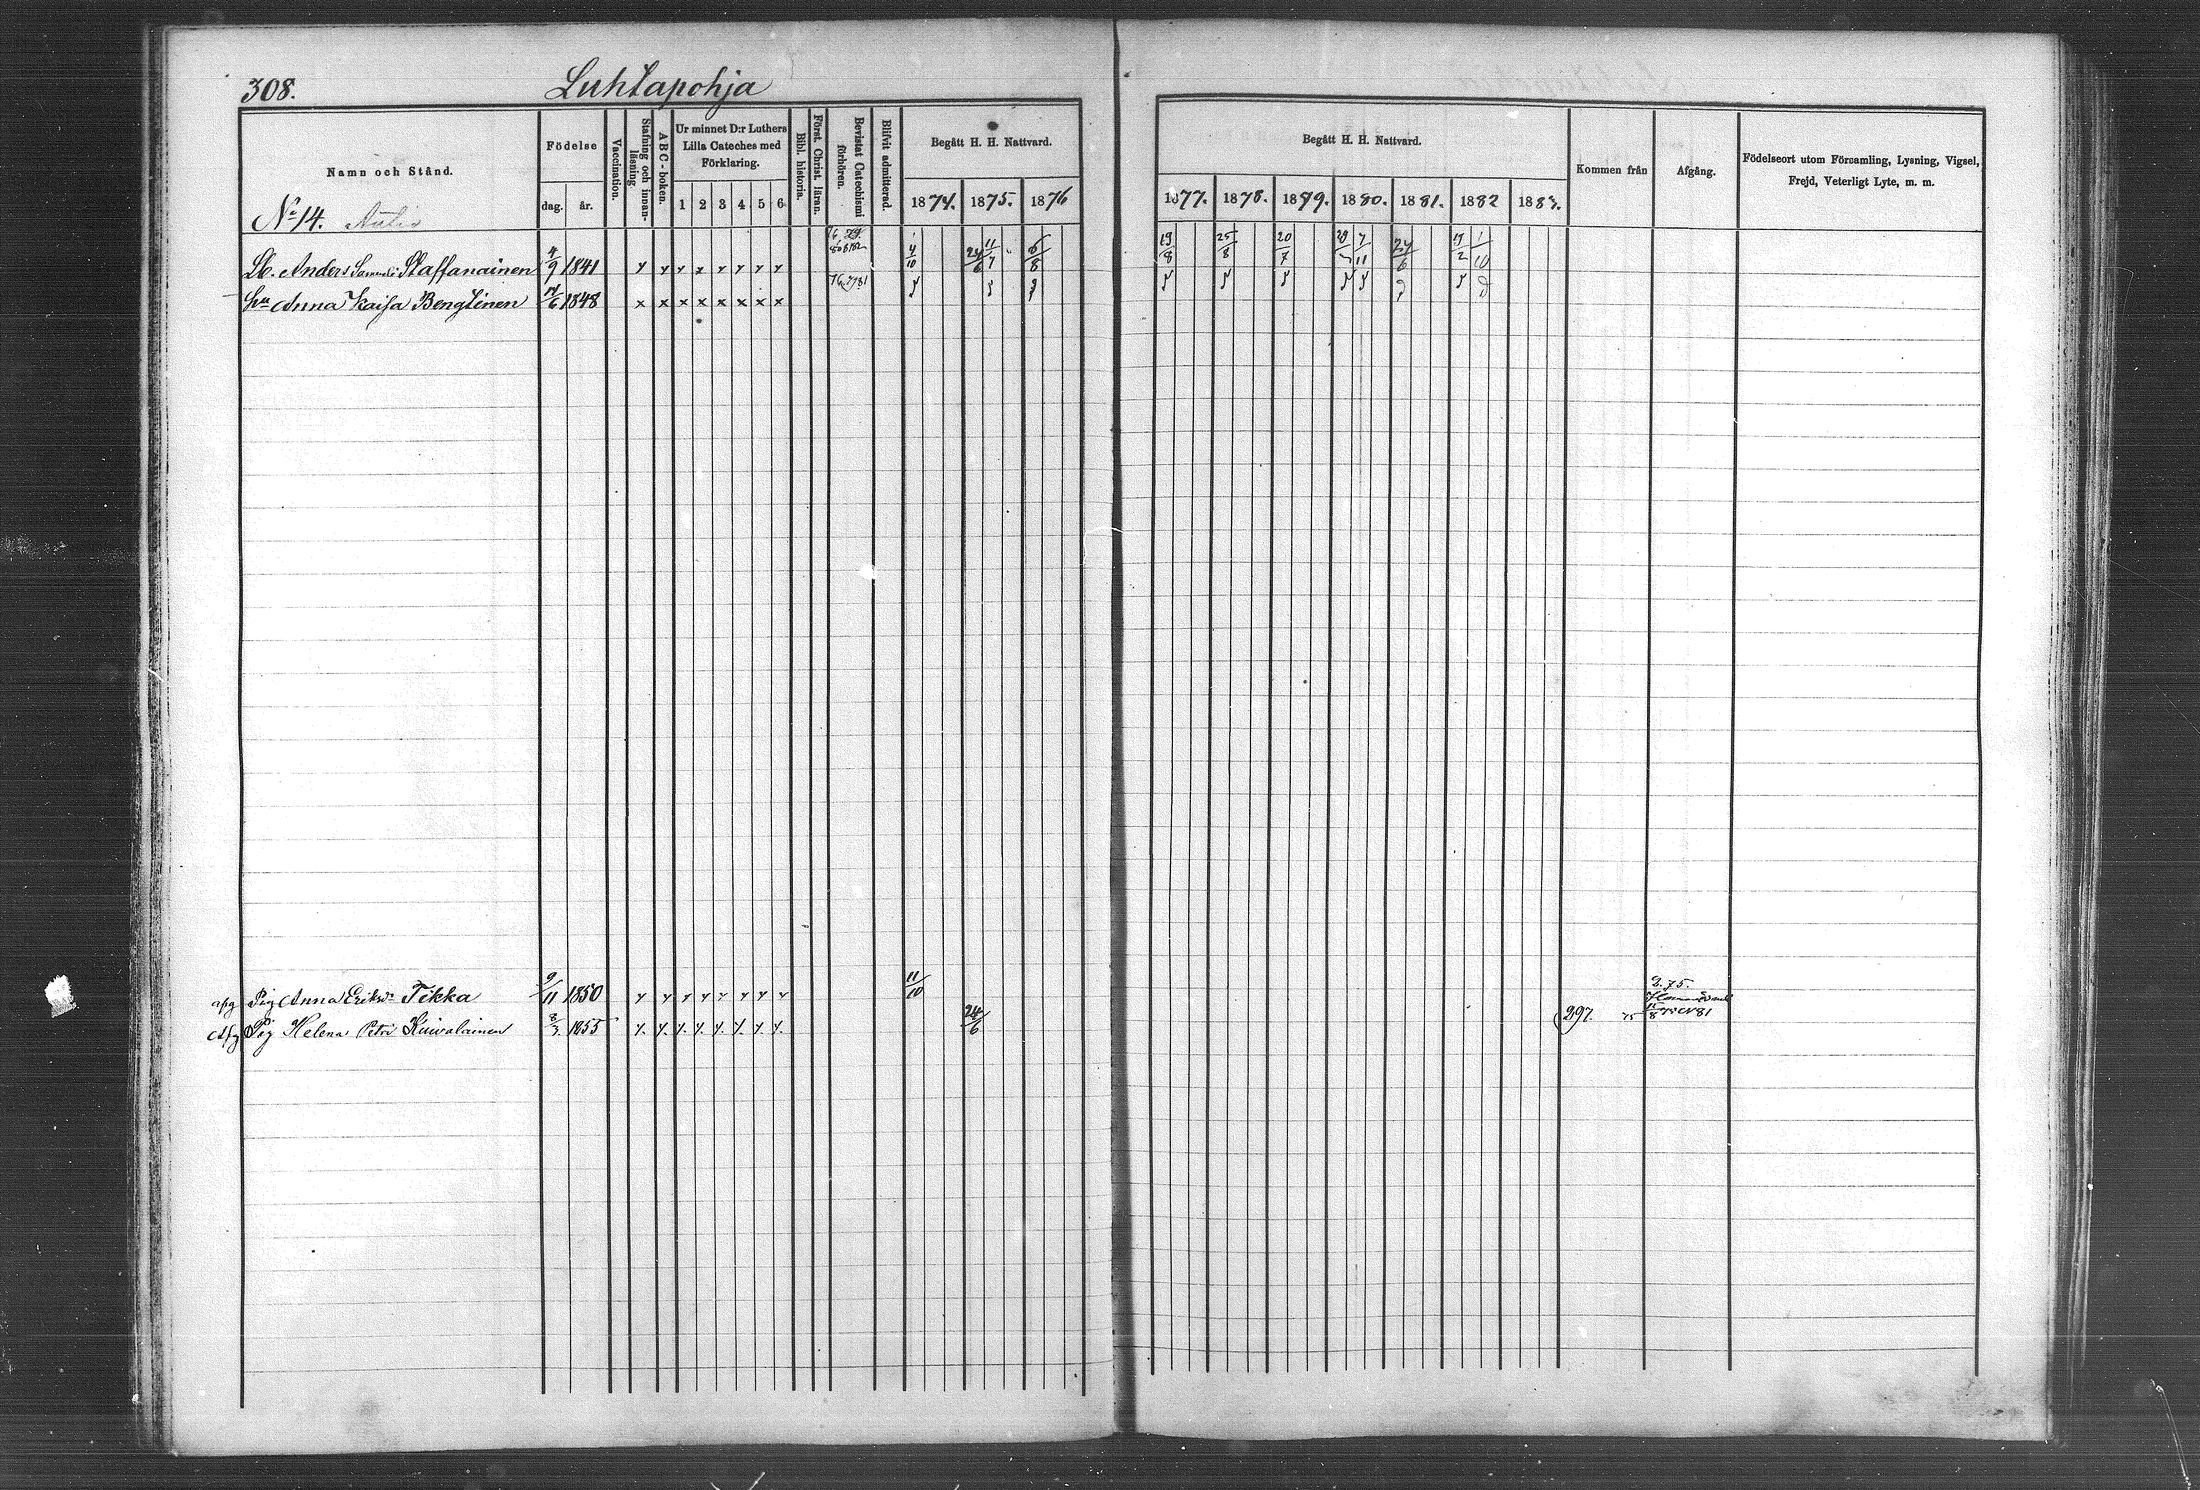 308. Luhtapohja
Namn och Stånd.
Födelse
dag. år.
Vaccination.
Stafning och innan-läsning
A B C-boken.
Ur minnet D:r Luthers
Lilla Cateches med
Förklaring.
1 2 3 4 5 6
Bibl. historia.
Först. Christ. läran.
Bevistat Catechismi förhören.
Blifvit admitterad.
Begått H. H. Nattvard.
1874. 1875. 1876
Begått H. H. Nattvard.
1877. 1878. 1879. 1880. 1881. 1882 1883.
Kommen från
Afgång.
Födelseort utom Församling, Lysning, Vigsel,
Frejd, Veterligt Lyte, m. m.
No 14. Autio
Anders Samueli Staffanainen 4/9 1841 4/10 24/6 11/7 6/8 19/8 25/8 20/7 7/11 24/6 1/10
hu Anna Kaisa Bengtinen 1848
afg Pig Anna Eriksdr Tikka 9/11 1850 11/10
Afg Pig Helena Petri Kuivalainen 8/3 1855 24/6 297.